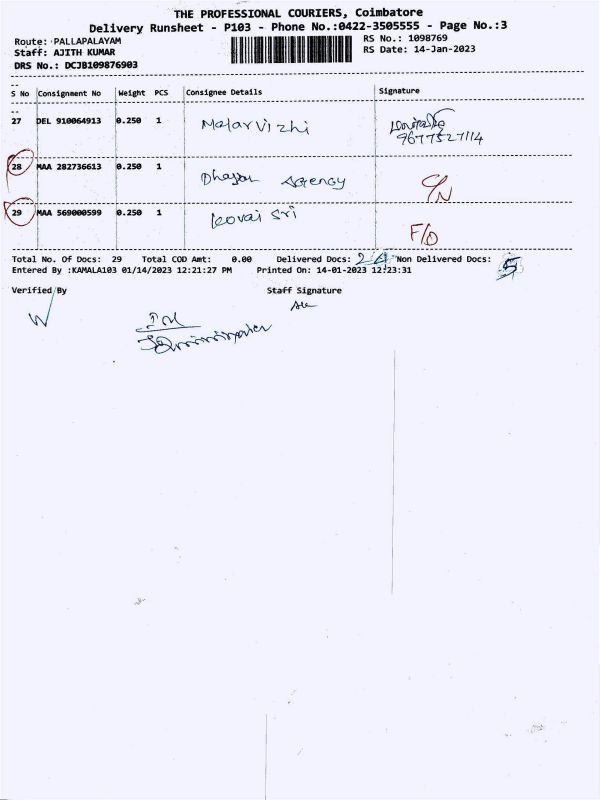 THE PROFESSIONAL COURIERS, Coimbatore
Delivery Runsheet - P103 - Phone No.:0422-3505555 - Page No.:3
Route: PALLAPALAYAM RS No.: 1098769
Staff: AJITH KUMAR RS Date: 14-Jan-2023
DRS No.: DCJB109876903
S No Consignment No Weight PCS Consignee Details Signature
27 DEL 910064913 0.250 1 Malarvizhi
9677527114
28 MAA 282736613 0.250 1 Agency C/N
29 MAA 569000599 0.250 1 Kovai Sri F/D
Total No. Of Docs: 29 Total COD Amt: 0.00 Delivered Docs: 24 Non Delivered Docs: 5
Entered By :KAMALA103 01/14/2023 12:21:27 PM Printed On: 14-01-2023 12:23:31
Verified By Staff Signature